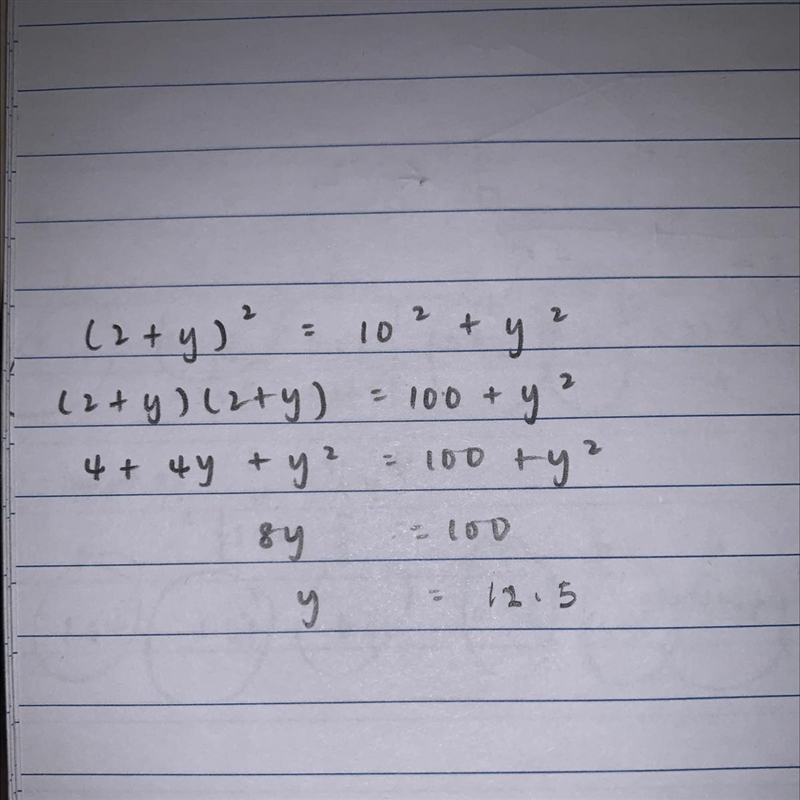 (2+y)² = 10² + y²
(2+y)(2+y) = 100 + y²
4 + 4y + y² = 100 + y²
8y = 100
y = 12.5